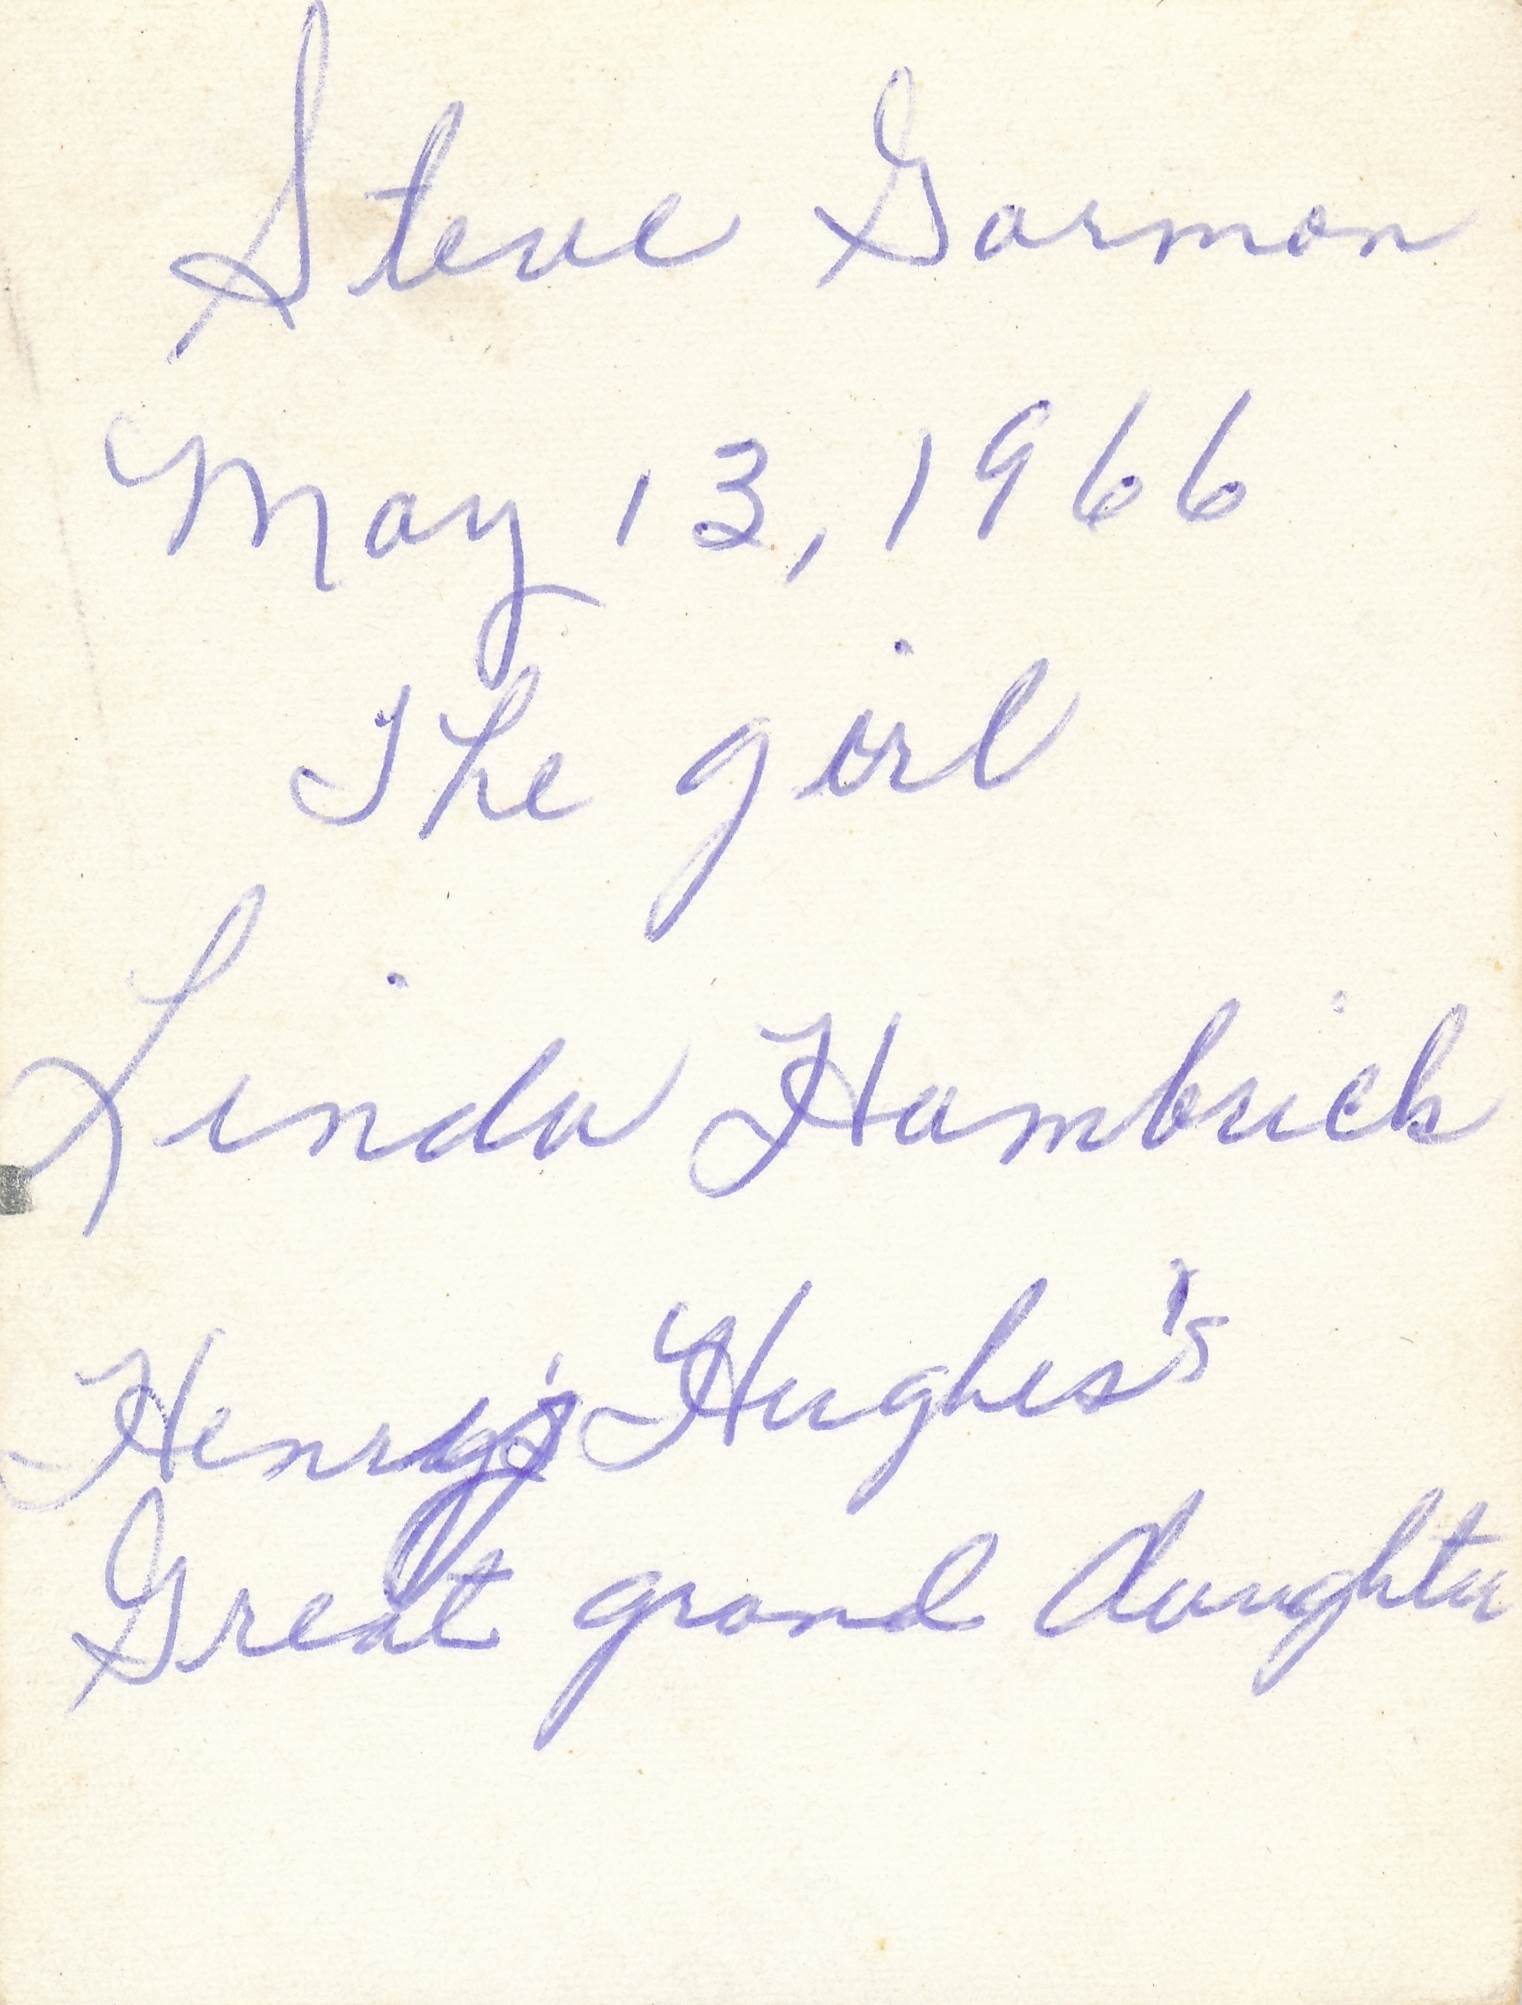 Steve Garmon
May 13, 1966
The girl
Linda Hambrick
Henry's Hughes's
Great grand daughter